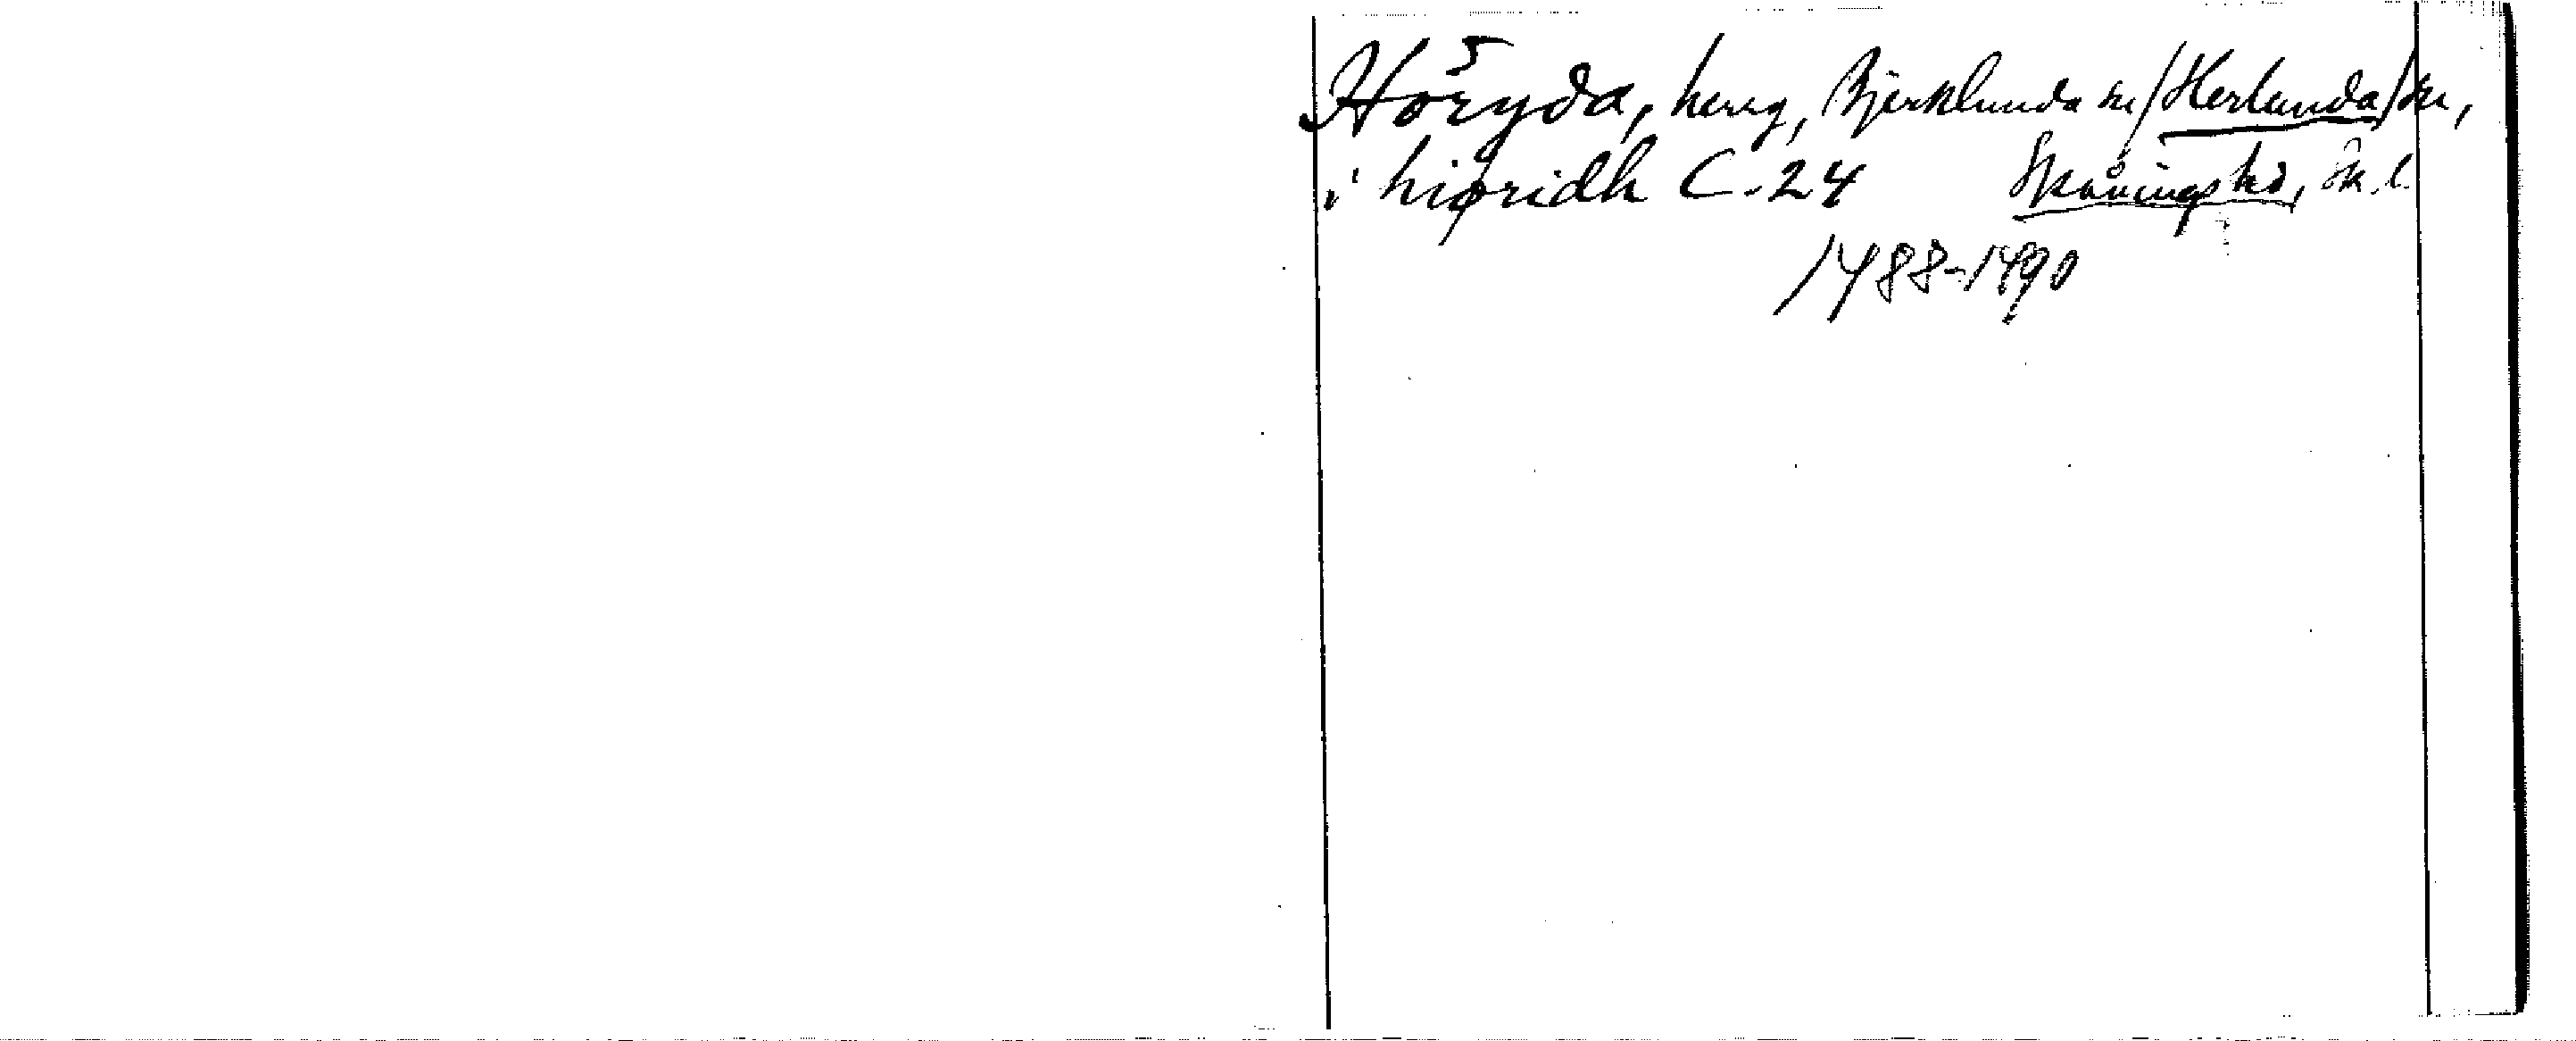 Höryda, hemg, Bjerklunda sn/Herlunda/sn,
i hiøridh C. 24 Skånings hd, Sk. l.
1488-1490